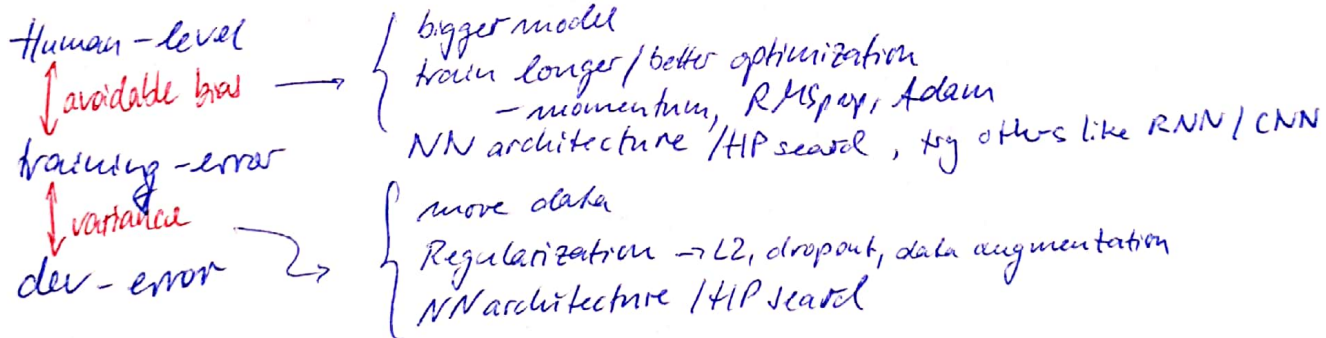 Human-level
avoidable bias →
training-error
variance →
dev-error
bigger model
train longer/better optimization
- momentum, RMSprop, Adam
NN architecture /HP search, try others like RNN/CNN
more data
Regularization → L2, dropout, data augmentation
NN architecture /HP search